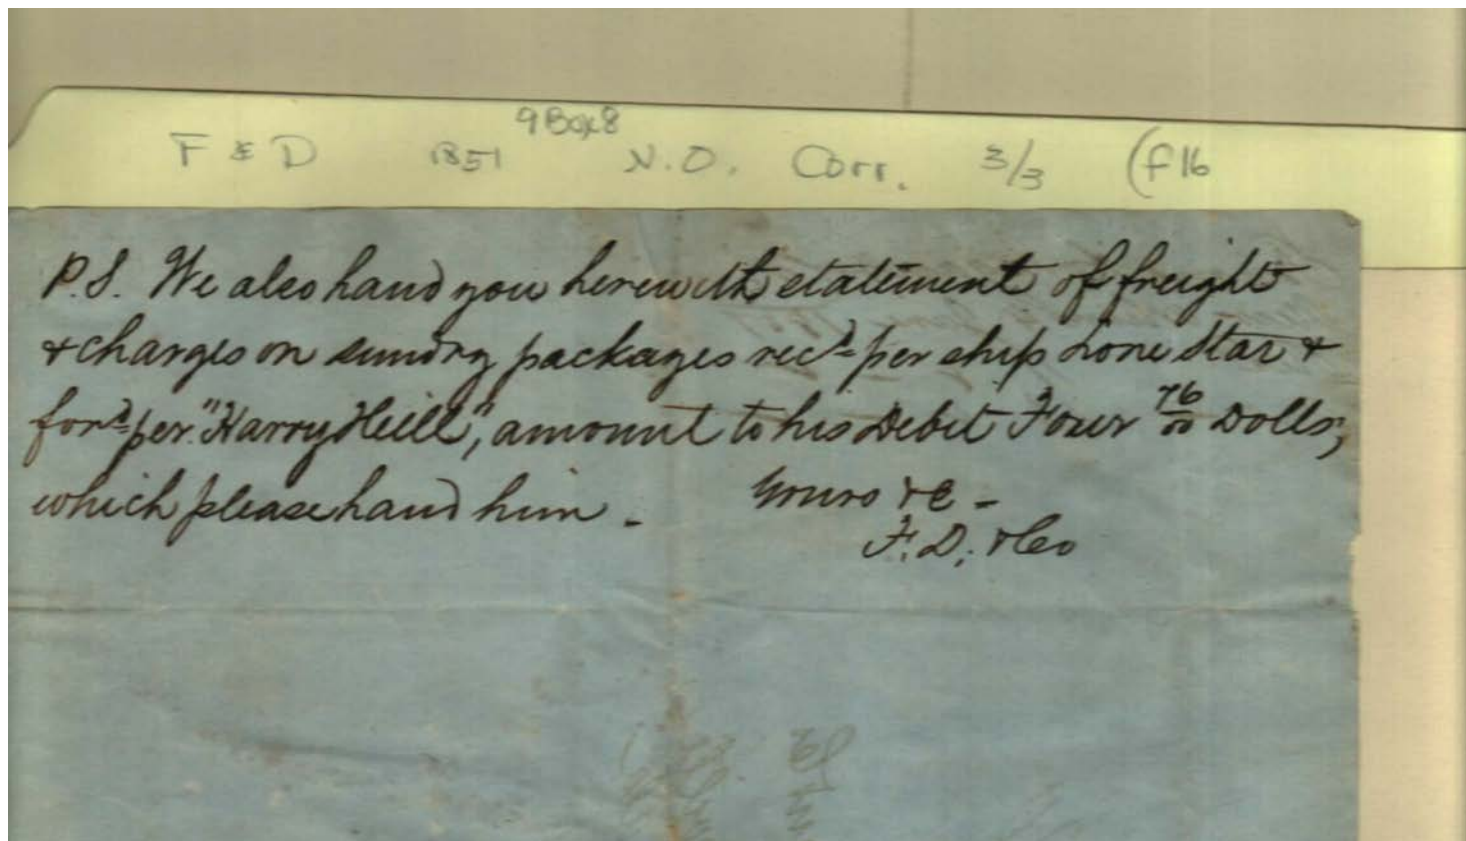 9 Box 8
F & D 1851 N.O. Corr. 3/3 (f 16
P.S. We also hand you herewith statement of freight
& charges on sundry packages recd per ship Lone Star &
ford per "Harry Hill", amount to his Debit Four 76/00 Dolls,
which please hand him.
Yours &c -
F. D. & Co